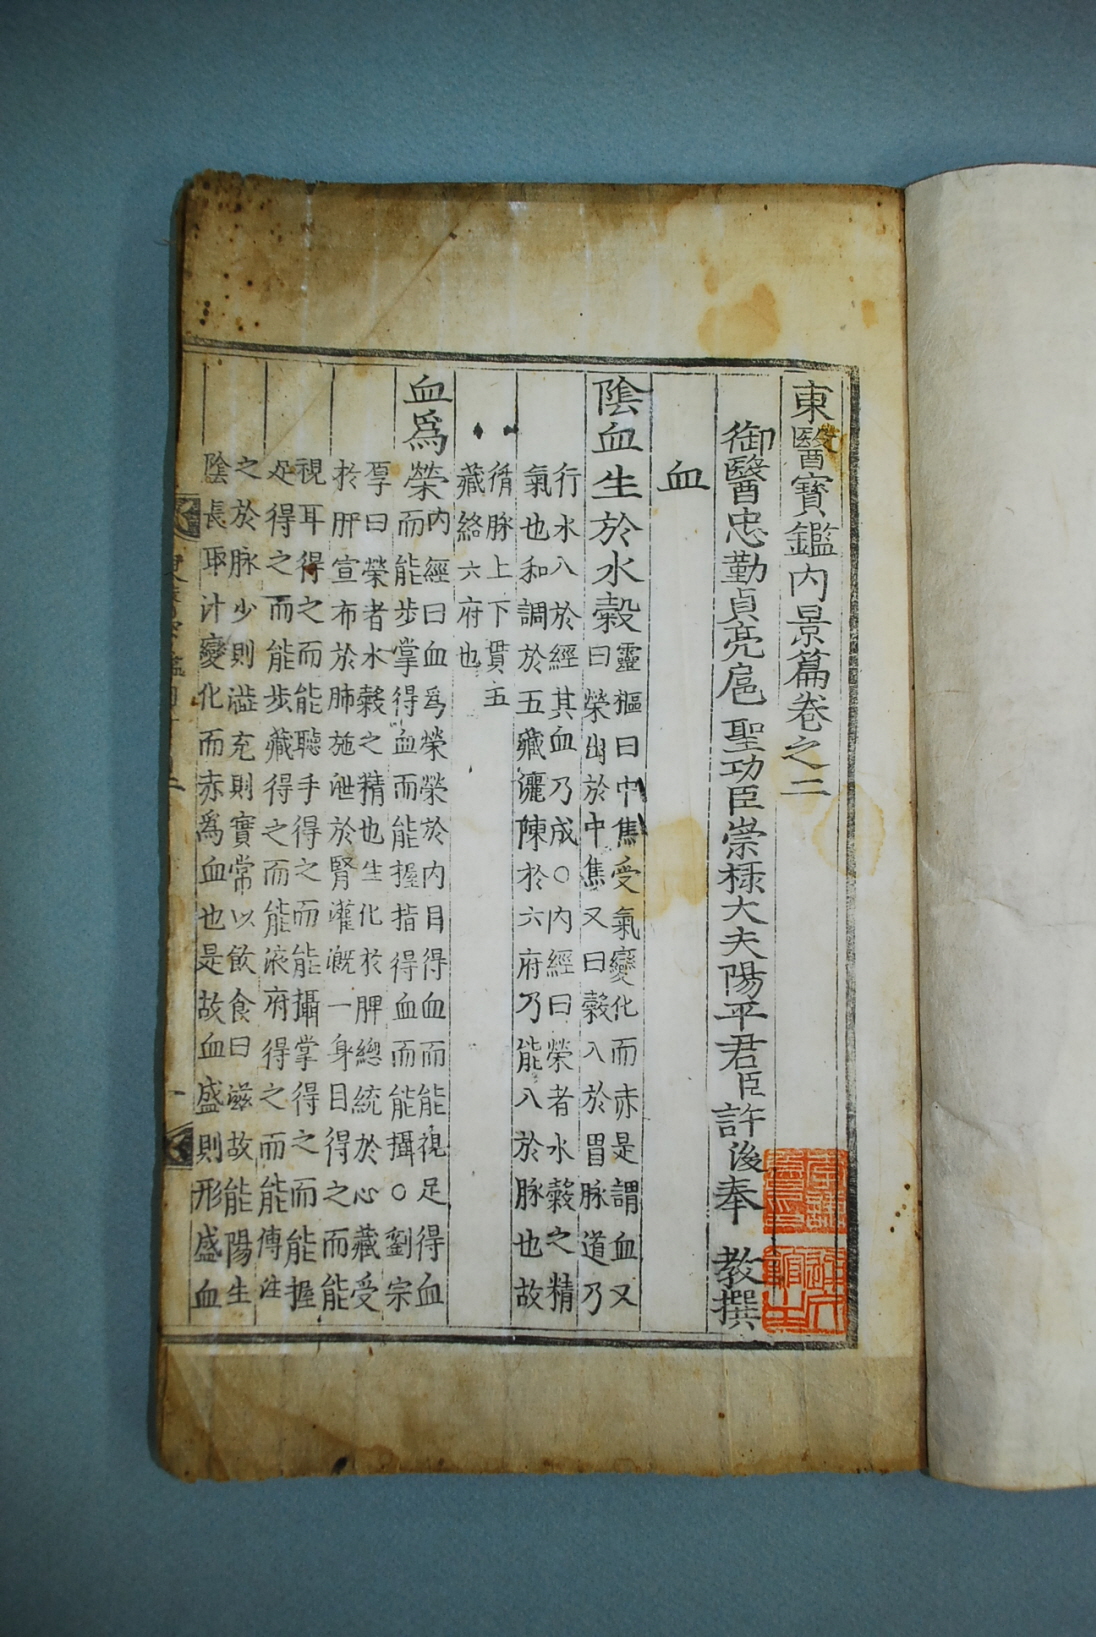 東醫寶鑑內景篇卷之二
御醫忠勤貞亮扈 聖功臣崇祿大夫陽平君臣許浚奉 教撰
血
陰血生於水穀
靈樞曰中焦受氣變化而赤是謂血又
曰榮出於中焦又曰穀入於胃脉道乃
行水入於經其血乃成○內經曰榮者水穀之精
氣也和調於五藏灑陳於六府乃能入於脉也故
循脉上下貫五
藏絡六府也
血爲榮
內經曰血爲榮榮於內目得血而能視足得血
而能步掌得血而能握指得血而能攝○劉宗
厚曰榮者水穀之精也生化於脾總統於心藏受
於肝宣布於肺施泄於腎灌漑一身目得之而能
視耳得之而能聽手得之而能攝掌得之而能握
足得之而能步藏得之而能液府得之而能傳注
之於脉少則澁充則實常以飮食日滋故能陽生
陰長取汁變化而赤爲血也是故血盛則形盛血